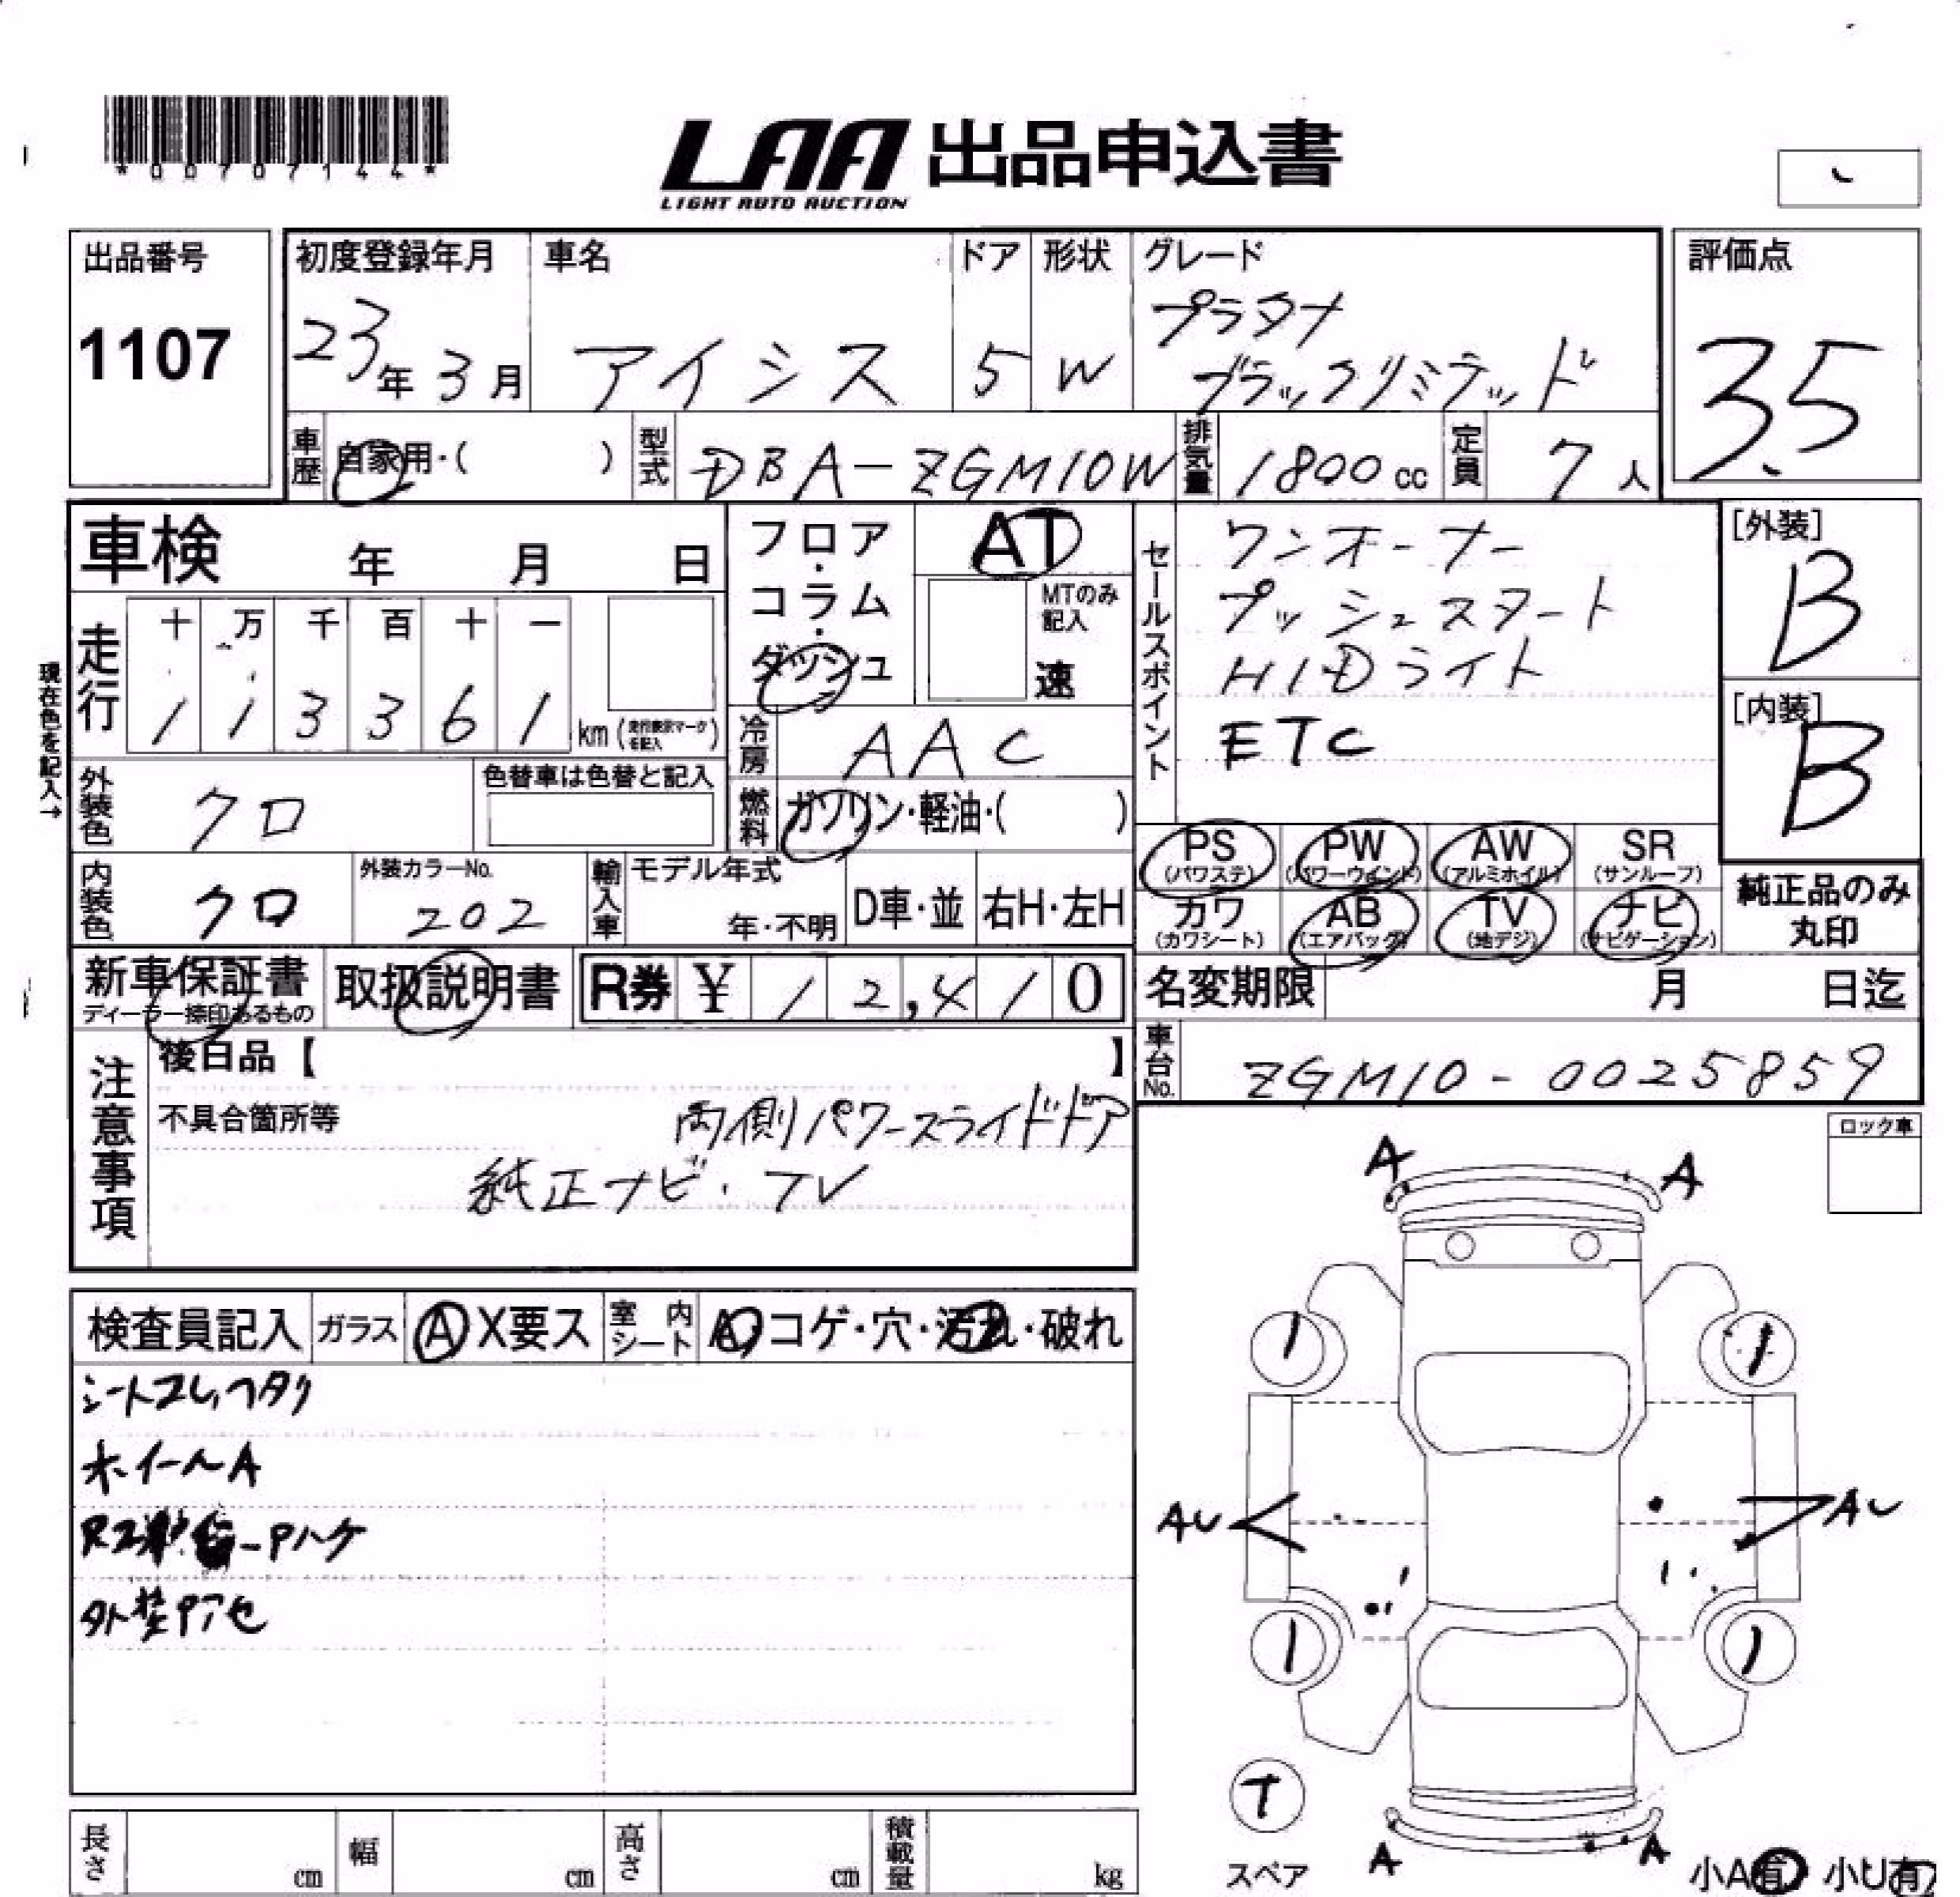 *00707144*
LAA 出品申込書
LIGHT AUTO AUCTION
出品番号
1107
初度登録年月
23年3月
車名
アイシス
ドア
5
形状
W
グレード
プラタナ
ブラックリミテッド
評価点
3.5
車歴
自家用・( )
型式
DBA-ZGM10W
排気量
1800cc
定員
7人
車検 年 月 日
フロア・コラム・ダッシュ
AT
MTのみ記入
速
セールスポイント
ワンオーナー
プッシュスタート
HIDライト
ETC
[外装]
B
[内装]
B
現在色を記入→
走行
十 万 千 百 十 一
1 1 3 3 6 1 km
冷房
AAC
外装色
クロ
色替車は色替と記入
燃料
ガソリン・軽油・( )
内装色
クロ
外装カラーNo.
202
輸入車
モデル年式
年・不明
D車・並
右H・左H
PS (パワステ)
PW (パワーウインド)
AW (アルミホイル)
SR (サンルーフ)
カワ (カワシート)
AB (エアバッグ)
TV (地デジ)
ナビ (ナビゲーション)
純正品のみ
丸印
新車保証書
ディーラー捺印あるもの
取扱説明書
R券 ¥12,410
名変期限 月 日迄
車台No.
ZGM10-0025859
注意事項
後日品【 】
不具合箇所等
両側パワースライドドア
純正ナビ・TV
ロック車
検査員記入
ガラス
A X要ス
室内シート
コゲ・穴・汚れ・破れ
ホイールA
A A
1 1
AU AU
1 1
T
スペア
A A
小A有 小U有
長さ cm
幅 cm
高さ cm
積載量 kg